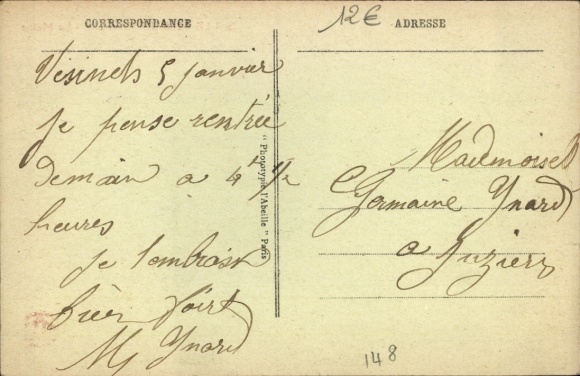 CORRESPONDANCE
12€
ADRESSE
Vésinets 5 janvier
je pense rentrée
demain a 4 1/2
heures
je t'embrasse
bien fort
M Ynard
" Phototypie l'Abeille " Paris
Mademoisel
Germaine Ynard
a
148